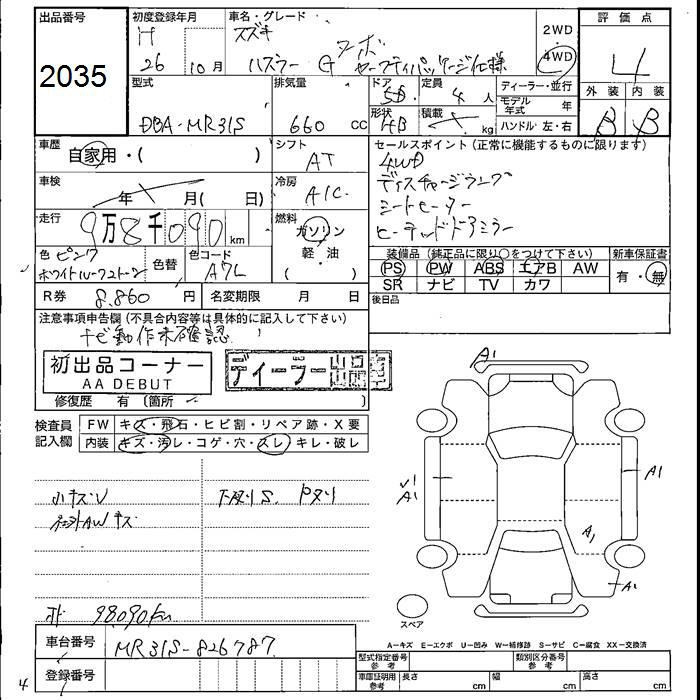 出品番号
2035
初度登録年月
H
26 10月
車名・グレード
スズキ
ハスラー G ターボ
セーフティパッケージ仕様
2WD
4WD
評価点
4
外装 内装
B B
型式
DBA-MR31S
排気量
660 cc
ドア
5D
形状
HB
定員
4 人
積載
kg
ディーラー・並行
モデル年式 年
ハンドル 左・右
車歴
自家用・( )
シフト
AT
セールスポイント(正常に機能するものに限ります)
4WD
ディスチャージランプ
シートヒーター
ヒーテッドドアミラー
車検
年 月( 日)
冷房
A/C
走行
9万8千090 km
燃料
ガソリン
軽・油
( )
色 ピンク
ホワイトルーフ2トーン
色替
色コード
A7L
装備品(純正品に限り○をつけて下さい)
PS PW ABS エアB AW
SR ナビ TV カワ
新車保証書
有・無
R券 8,860 円
名変期限 月 日
後日品
注意事項申告欄(不具合内容等は具体的に記入して下さい)
ナビ動作未確認
初出品コーナー
AA DEBUT
ディーラー出品車
修復歴 有(箇所
検査員
記入欄
FW キズ・飛石・ヒビ割・リペア跡・X要
内装 キズ・汚レ・コゲ・穴・スレ・キレ・破レ
小キズV
下廻りS
AWキズ
98,090km
A1
A1
A1
A1
A1
スペア
A-キズ E-エクボ U-凹み W-補修跡 S-サビ C-腐食 XX-交換済
車台番号
MR31S-826787
登録番号
型式指定番号
参考
類別区分番号
参考
車庫証明用
参考
長さ cm
幅 cm
高さ cm
4